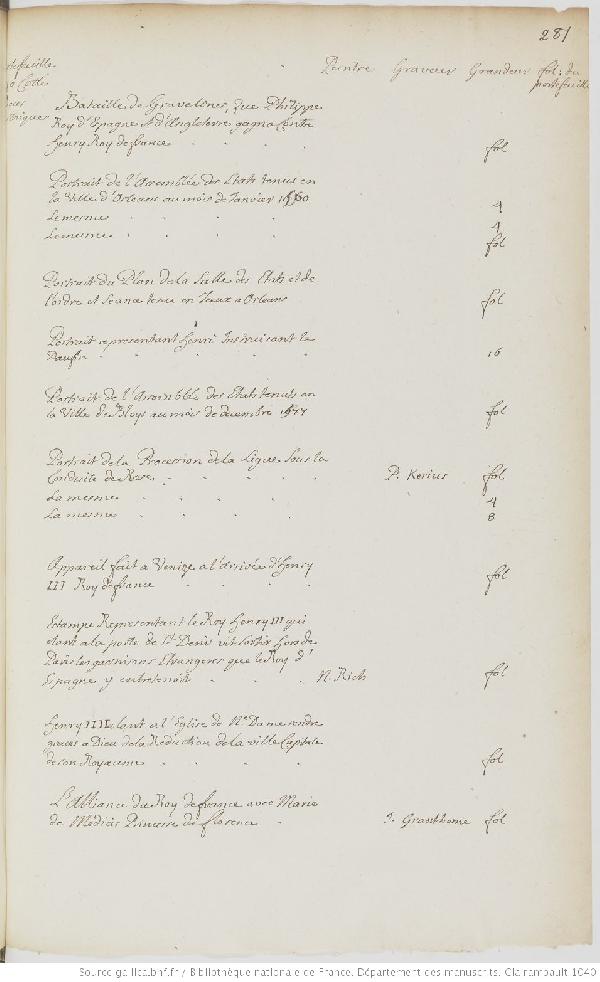 281
Peintre Graveur Grandeur fol: du
portefeuille
Bataille de Gravelines, que Philippe
Roy d'Espagne et d'Angleterre gagna contre
Henry Roy de france
fol
Portrait de l'Assemblée des Etats tenus en
la Ville d'Orleans au mois de Janvier 1560
4
Le mesme
4
Le mesme
fol
Portrait du Plan de la Salle des Etats et de
l'ordre et Seance tenue en Iceux a Orleans
fol
Portrait representant Henri Instruisant le
Dauphin
16
Portrait de l'Assemblée des Etats tenus en
la Ville de Bloys au mois de decembre 1577
fol
Portrait de la Procession de la Ligue Sous la
Conduite de Rose P. Kerius fol
La mesme 4
La mesme 8
Appareil fait a Venize a l'arrivée d'Henry
III Roy de france fol
Estampe Representant le Roy Henry IIII qui
etant a la porte de St Denis vit sortir hors de
Paris les garnisons Etrangeres que le Roy d'
Espagne y entretenoit N. Rich fol
Henry IIII etant a l'Eglise de Ne Dame rendre
graces a Dieu de la Reduction de la ville Capitale
de son Royaume fol
L'Alliance du Roy de france avec Marie
de Medicis Princesse de florence J. Grasthome fol
Source gallica.bnf.fr / Bibliothèque nationale de France. Département des manuscrits. Clairambault 1040